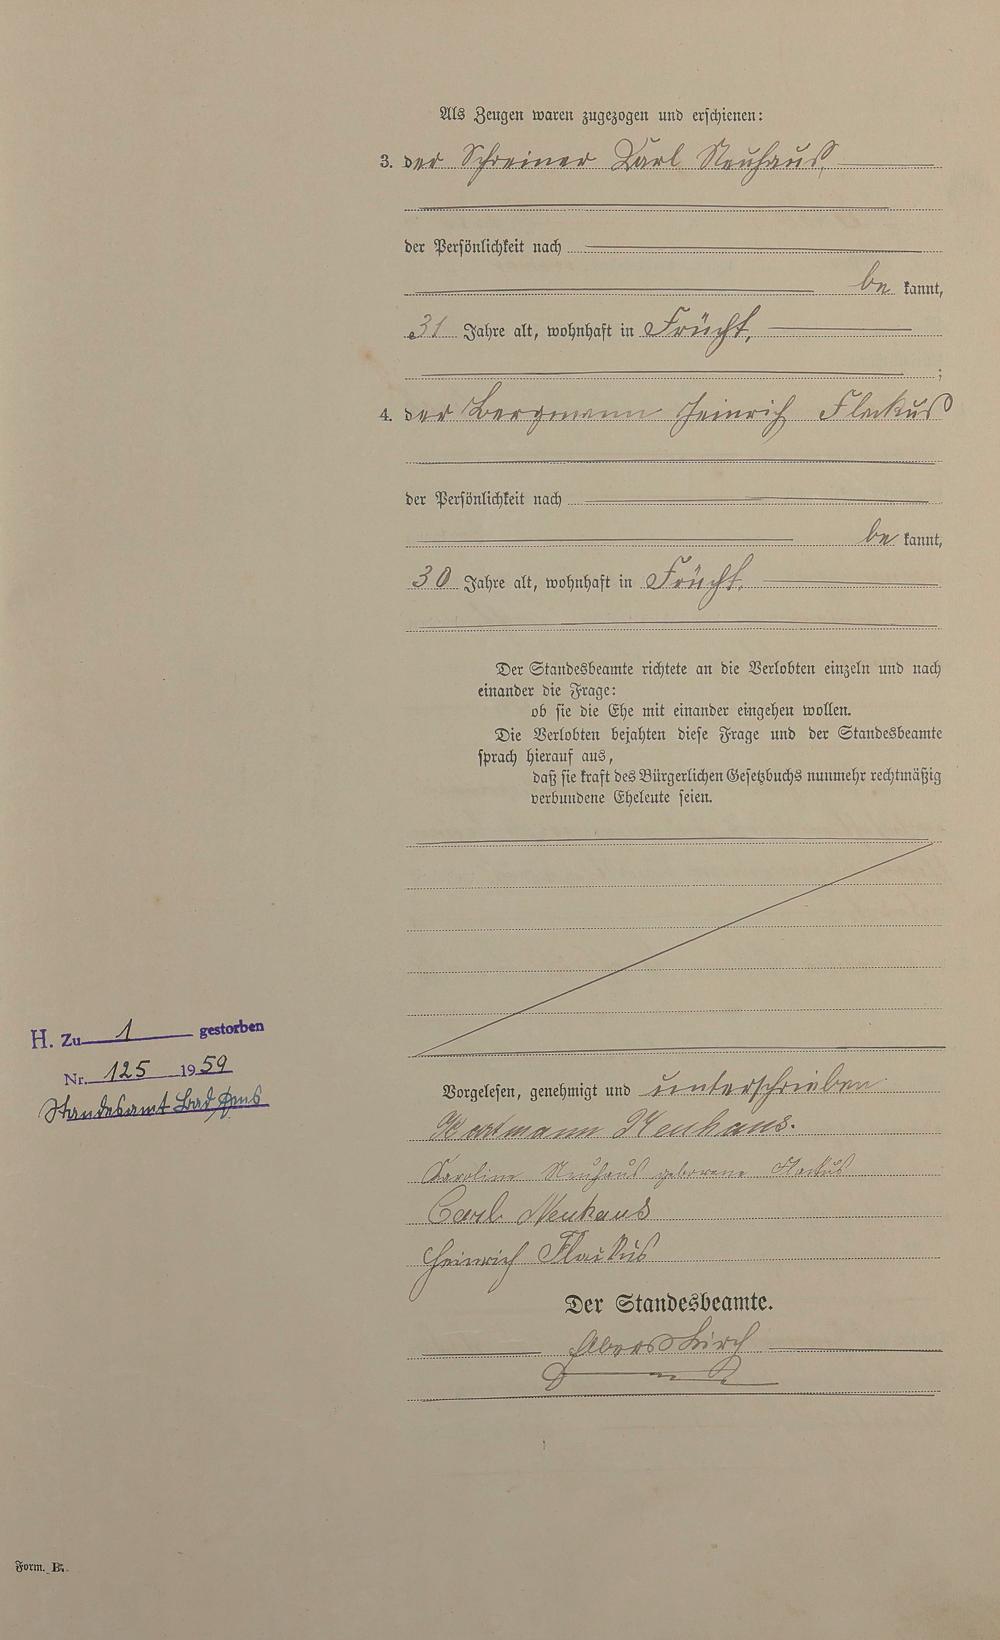 Als Zeugen waren zugezogen und erschienen:
3. der Schreiner Karl Neuhaus,
der Persönlichkeit nach
be kannt,
31 Jahre alt, wohnhaft in Frücht,
;
4. der Bergmann Heinrich Flackus
der Persönlichkeit nach
be kannt,
30 Jahre alt, wohnhaft in Frücht.
Der Standesbeamte richtete an die Verlobten einzeln und nach
einander die Frage:
ob sie die Ehe mit einander eingehen wollen.
Die Verlobten bejahten diese Frage und der Standesbeamte
sprach hierauf aus,
daß sie kraft des Bürgerlichen Gesetzbuchs nunmehr rechtmäßig
verbundene Eheleute seien.
H. Zu 1 gestorben
Nr. 125 1959
Standesamt Bad Ems
Vorgelesen, genehmigt und unterschrieben
Hartmann Neuhaus.
Karoline Neuhaus geborene Flackus
Carl Neuhaus
Heinrich Flackus
Der Standesbeamte.
Form. B.